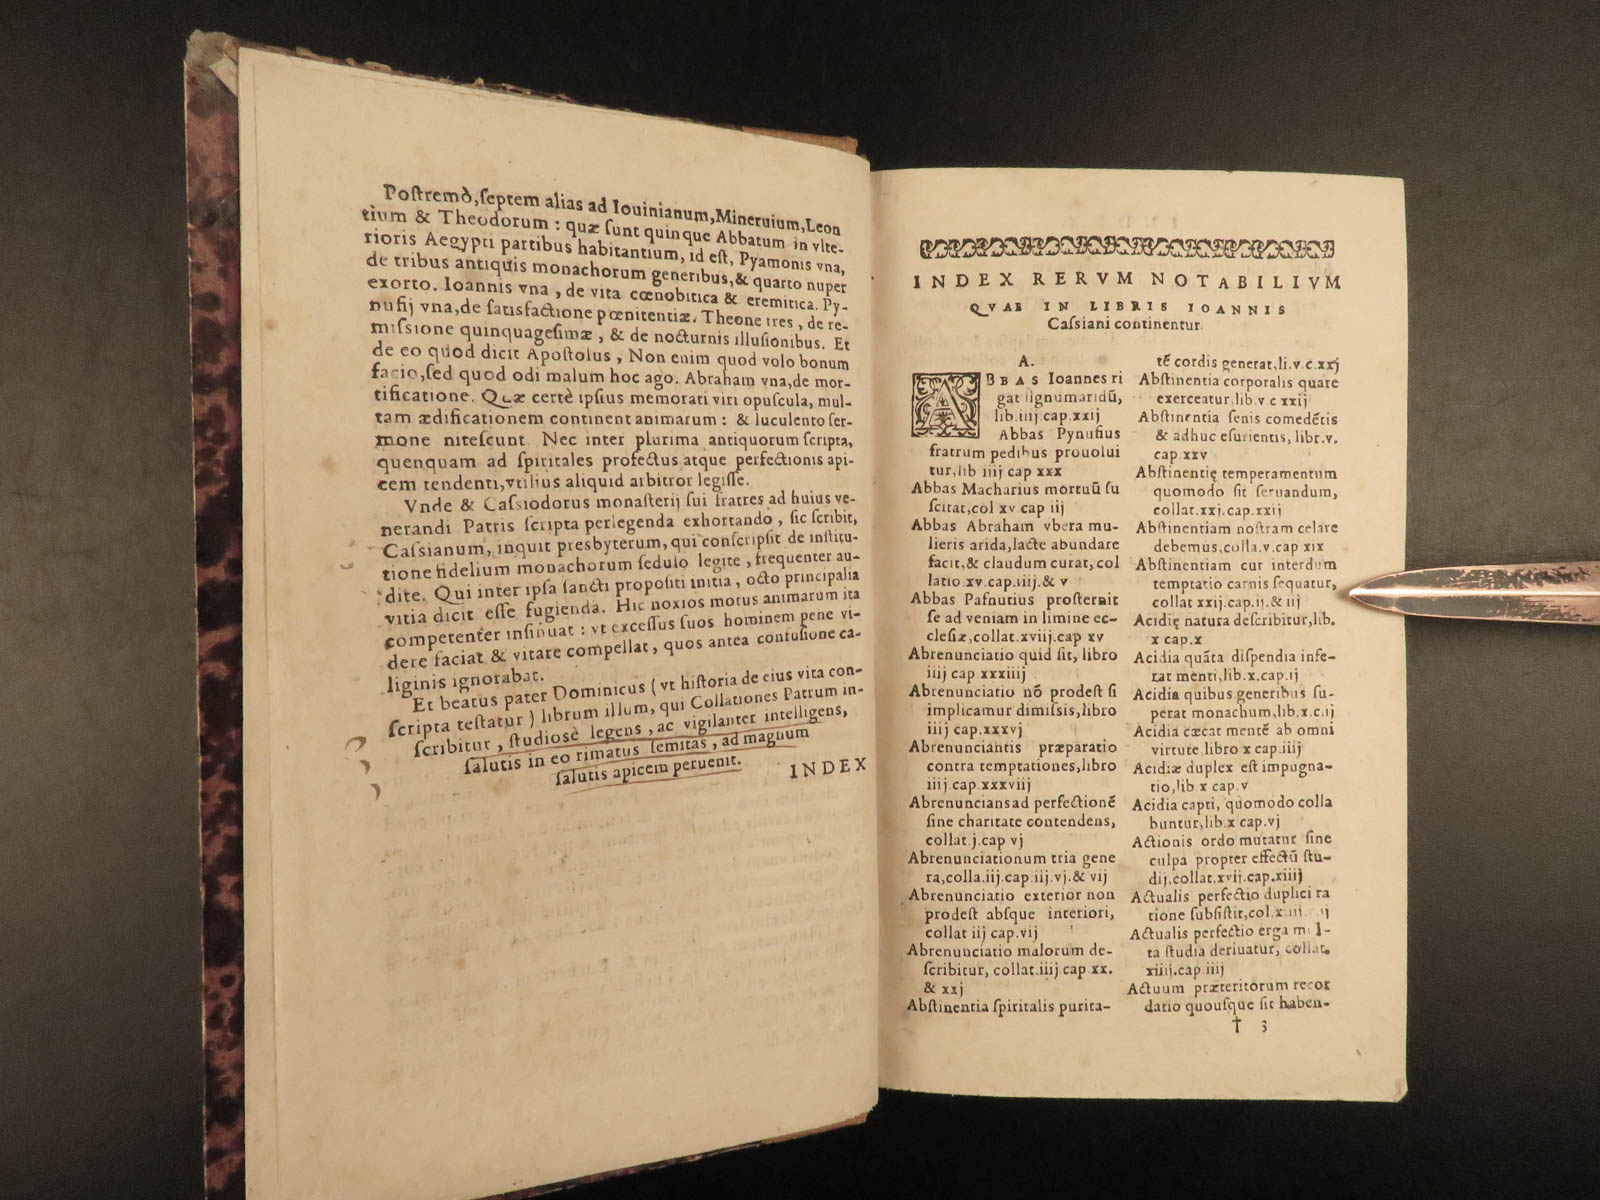 Poſtremò, ſeptem alias ad Iouinianum, Mineruium, Leon
tium & Theodorum : quæ ſunt quinque Abbatum in vlte-
rioris Aegypti partibus habitantium, id eſt, Pyamonis vna,
de tribus antiquis monachorum generibus, & quarto nuper
exorto. Ioannis vna, de vita cœnobitica & eremitica. Py-
nufij vna, de ſatisfactione pœnitentiæ. Theone tres, de re-
miſſione quinquageſimæ, & de nocturnis illuſionibus. Et
de eo quod dicit Apoſtolus, Non enim quod volo bonum
facio, ſed quod odi malum hoc ago. Abraham vna, de mor-
tificatione. Quæ certè ipſius memorati viri opuſcula, mul-
tam ædificationem continent animarum : & luculento ſer-
mone niteſcunt. Nec inter plurima antiquorum ſcripta,
quenquam ad ſpiritales profectus atque perfectionis api-
cem tendenti, vtilius aliquid arbitror legiſſe.
Vnde & Caſsiodorus monaſterij ſui fratres ad huius ve-
nerandi Patris ſcripta perlegenda exhortando, ſic ſcribit,
Caſsianum, inquit presbyterum, qui conſcripſit de inſtitu-
tione fidelium monachorum ſedulo legite, frequenter au-
dite. Qui inter ipſa ſancti propoſiti initia, octo principalia
vitia dicit eſſe fugienda. Hic noxios motus animarum ita
competenter inſinuat : vt exceſſus ſuos hominem pene vi-
dere faciat & vitare compellat, quos antea confuſione ca-
liginis ignorabat.
Et beatus pater Dominicus (vt hiſtoria de eius vita con-
ſcripta teſtatur) librum illum, qui Collationes Patrum in-
ſcribitur, ſtudioſè legens, ac vigilanter intelligens,
ſalutis in eo rimatus ſemitas, ad magnum
ſalutis apicem peruenit.
INDEX
INDEX RERVM NOTABILIVM
QVAE IN LIBRIS IOANNIS
Caſsiani continentur.
A.
ABBAS Ioannes ri
gat lignum aridū,
lib. iiij cap. xxij
Abbas Pynufius
fratrum pedibus prouolui
tur, lib iiij cap xxx
Abbas Macharius mortuū ſu
ſcitat, col xv cap iij
Abbas Abraham vbera mu-
lieris arida, lacte abundare
facit, & claudum curat, col
latio xv. cap. iiij. & v
Abbas Pafnutius proſternit
ſe ad veniam in limine ec-
cleſiæ, collat. xviij. cap xv
Abrenunciatio quid ſit, libro
iiij cap xxxiiij
Abrenunciatio nō prodeſt ſi
implicamur dimiſsis, libro
iiij cap. xxxvj
Abrenunciantis præparatio
contra temptationes, libro
iiij cap. xxxviij
Abrenuncians ad perfectionē
ſine charitate contendens,
collat. j. cap vj
Abrenunciationum tria gene
ra, colla. iij. cap. iij. vj. & vij
Abrenunciatio exterior non
prodeſt abſque interiori,
collat iij cap. vij
Abrenunciatio malorum de-
ſcribitur, collat. iiij cap. xx.
& xxj
Abſtinentia ſpiritalis purita-
tē cordis generat, li. v. c. xxj
Abſtinentia corporalis quare
exerceatur, lib. v. c xxij
Abſtinentia ſenis comedētis
& adhuc eſurientis, libr. v.
cap. xxv
Abſtinentię temperamentum
quomodo ſit ſeruandum,
collat. xxj. cap. xxij
Abſtinentiam noſtram celare
debemus, colla. v. cap xix
Abſtinentiam cur interdum
temptatio carnis ſequatur,
collat xxij. cap. ij. & iij
Acidię natura deſcribitur, lib.
x cap. x
Acidia quāta diſpendia infe-
rat menti, lib. x. cap. ij
Acidia quibus generibus ſu-
perat monachum, lib. x. c. ij
Acidia cæcat mentē ab omni
virtute, libro x cap. iiij
Acidiæ duplex eſt impugna-
tio, lib x cap. v
Acidia capti, quomodo colla
buntur, lib. x cap. vj
Actionis ordo mutatur ſine
culpa propter effectū ſtu-
dij, collat. xvij. cap. xiiij
Actualis perfectio duplici ra
tione ſubſiſtit, col.
Actualis perfectio erga
ta ſtudia deriuatur, collat.
xiiij. cap iiij
Actuum præteritorum recor
datio quouſque ſit haben-
† 3